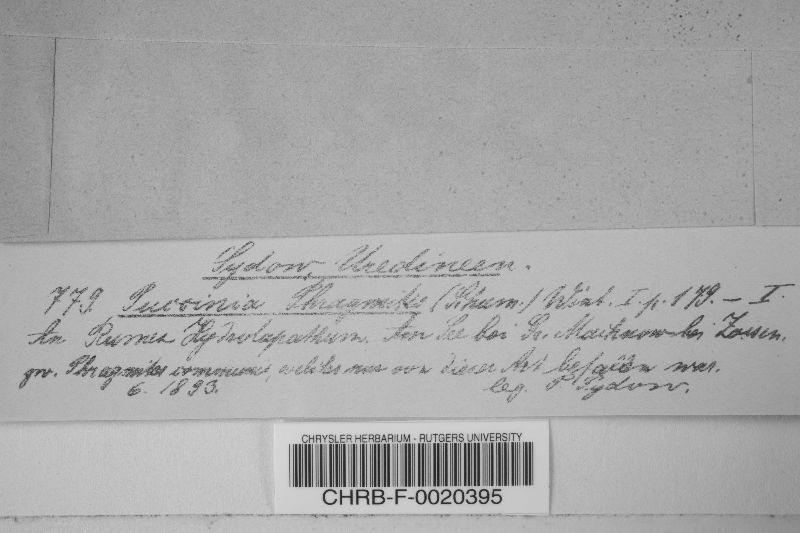 Sydow, Uredineen.
779. Puccinia Phragmitis (Schum.) Wint. I. p. 179. – I.
An Rumex Hydrolapathum. Am See bei Gr. Machnow bei Zossen.
Phragmites communis, welches nur von dieser Art befallen war.
6. 1893. leg. P. Sydow.
CHRYSLER HERBARIUM - RUTGERS UNIVERSITY
CHRB-F-0020395